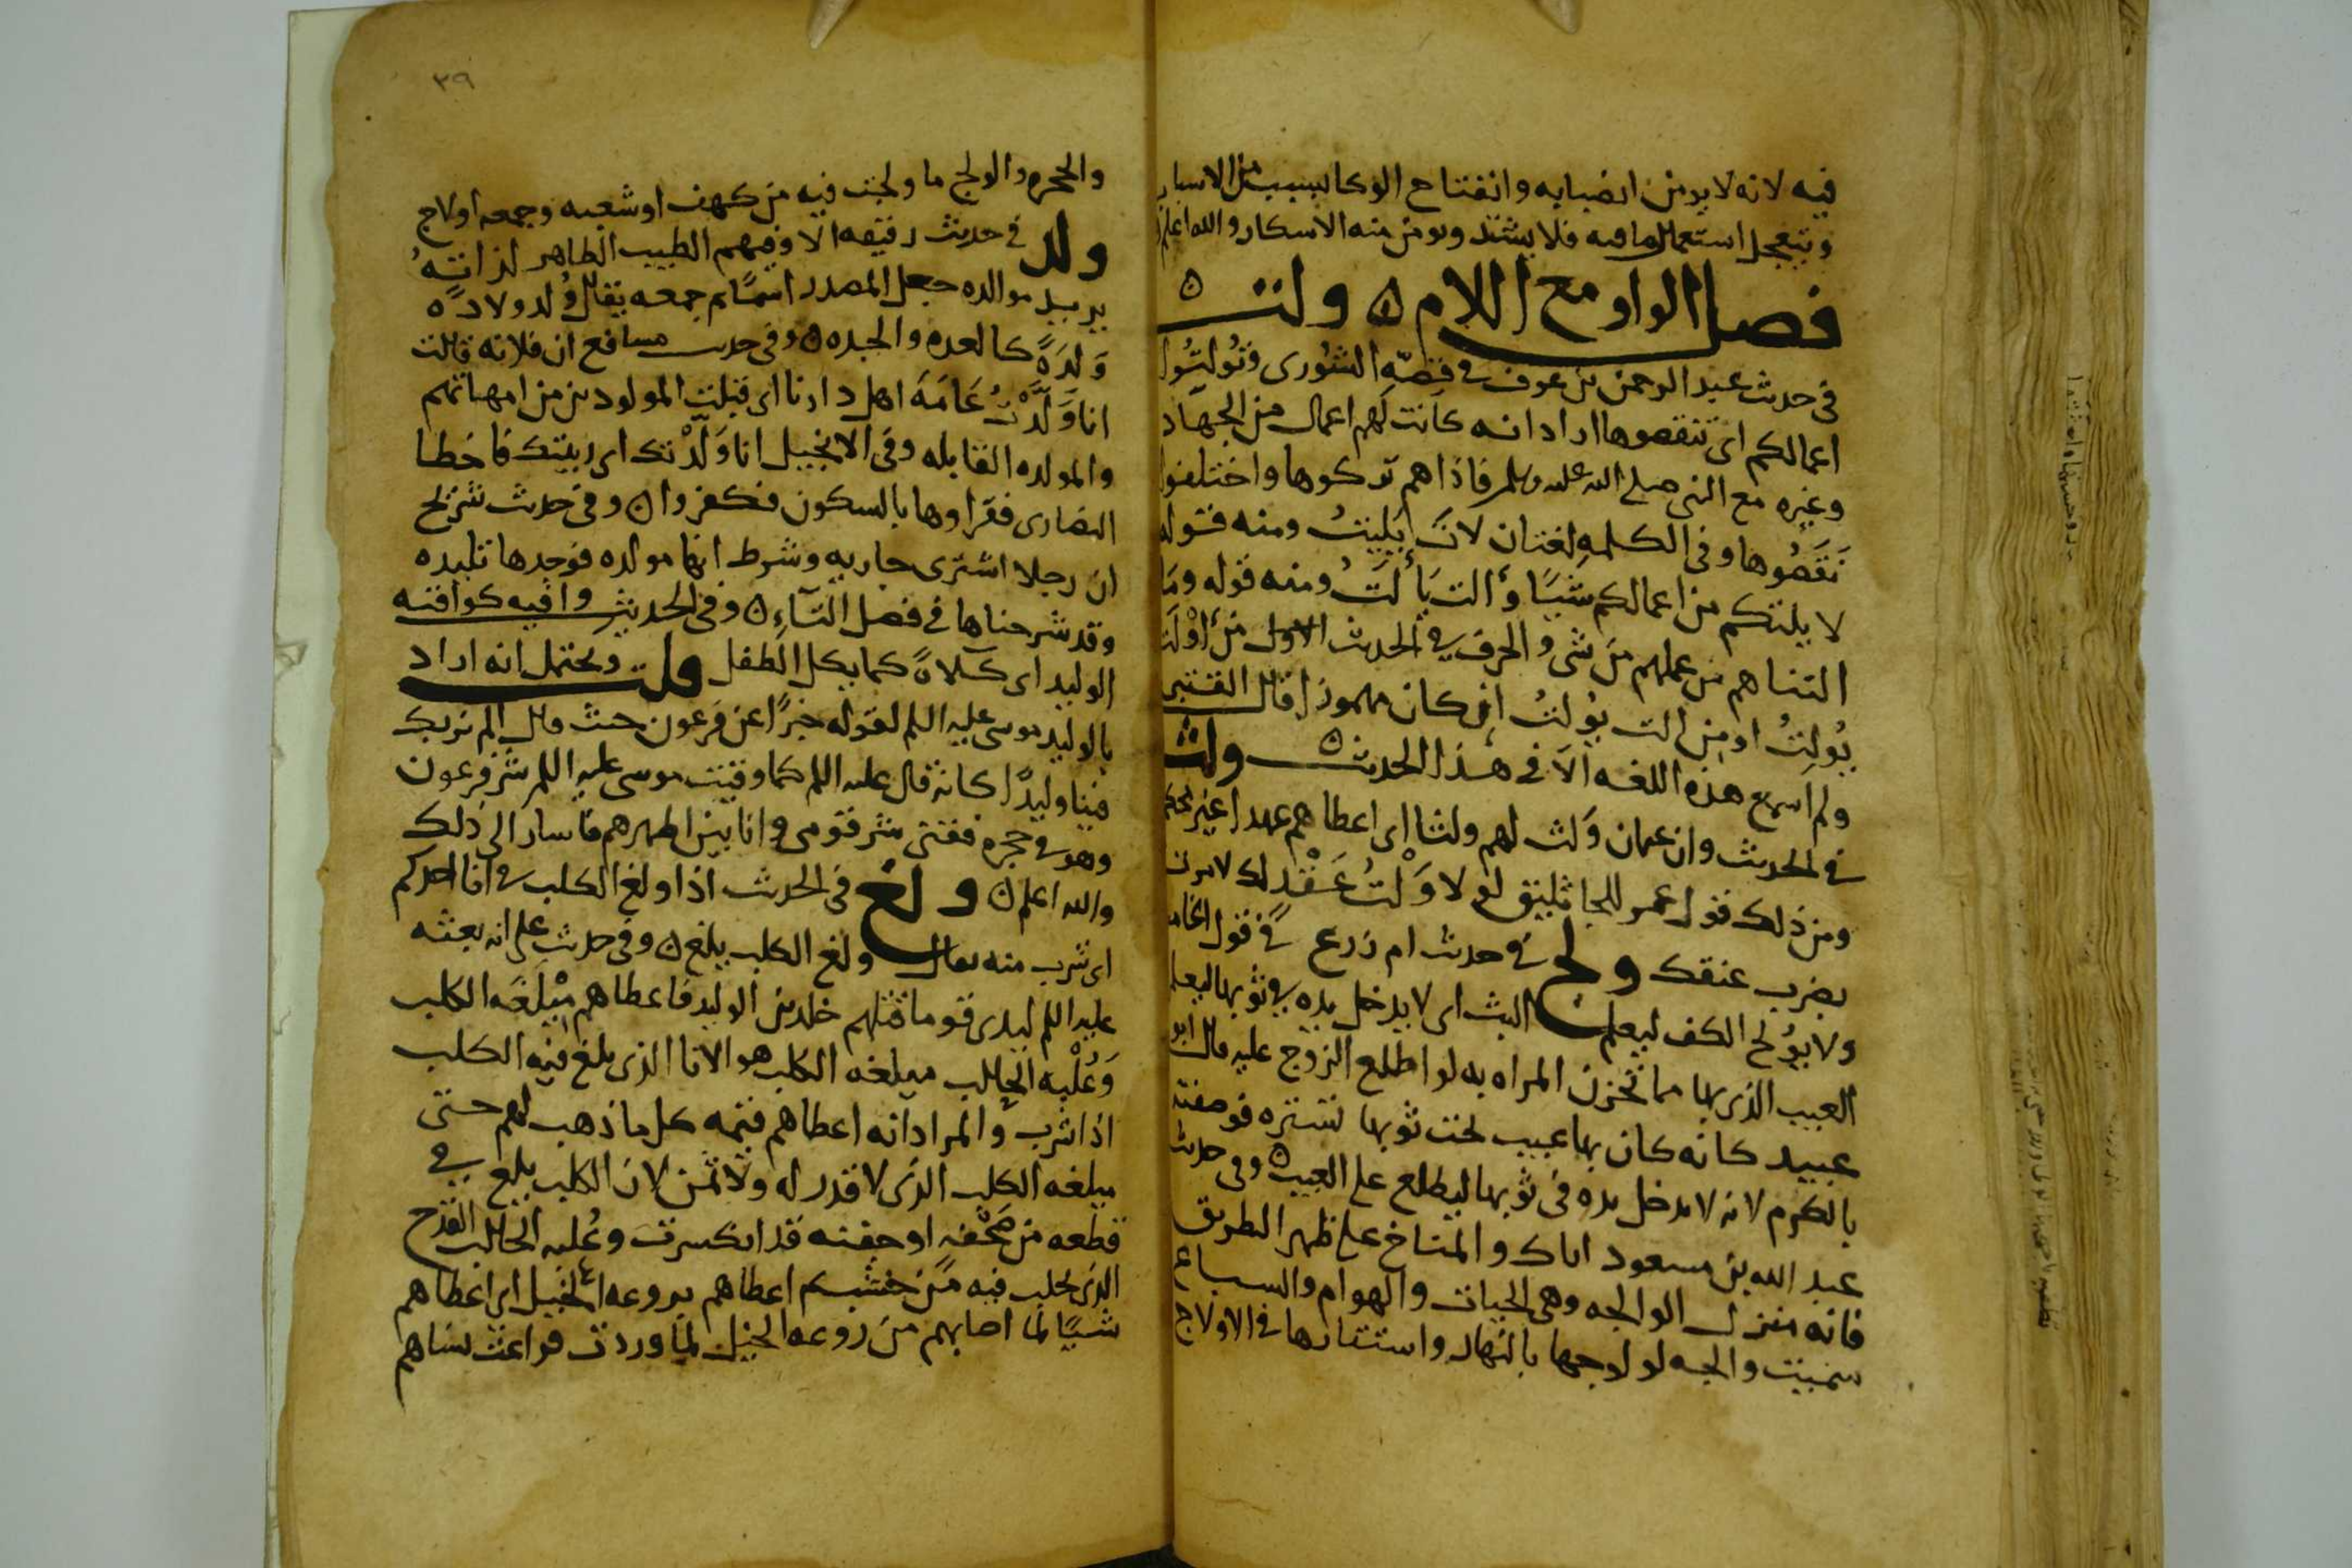 فيه لانه لا بد من انصبابه وانفتاح الوكا بسبب من الاسباب
ويتعجل استعمال ما فيه فلا يشتد ويومن منه الاسكار والله اعلم
فصل الواو مع اللام ٥ ولت ٥
في حديث عبد الرحمن بن عوف في قصة الشورى وتُولِتُوا
اعمالكم اى تنقصوها اراد انه كانت لهم اعمال من الجهاد
وغيره مع النبي صلى الله عليه وسلم فاذا هم تركوها واختلفوا
نَقَصُوها وفي الكلمه لغتان لاتَ يَلِيتُ ومنه قوله
لا يلتكم من اعمالكم شيًا وأَلَت يَأْلِتُ ومنه قوله وما
التناهم من عملهم من شى والحرف في الحديث الاول من اوْلَتَ
يُولِتُ او من الت يُولتُ ان كان مهموزا قال القتبي
ولم اسمع هذه اللغه الا في هذا الحديث ٥ ولث
في الحديث وان عمان وَلث لهم ولثا اى اعطاهم عهدا غير محكم
ومن ذلك قول عمر للجاثليق لولا وَلْثُ عَقْدٍ لك لامرت
بضرب عنقك ولج في حديث ام زرع في قول
ولا يُولج الكف ليعلم البث اى لا يدخل يده في ثوبها ليعلم
العيب الذى بها مما تحزن المراه به لو اطلع الزوج عليه قال ابو
عبيد كانه كان بها عيب تحت ثوبها تستره فوصفته
بالكرم لانه لا يدخل يده في ثوبها ليطلع على العيب ٥ وفي حديث
عبد الله بن مسعود اياك والمناخ على ظهر الطريق
فانه منزل الوالجه وهي الحيات والهوام والسباع
سميت والجه لولوجها بالنهار واستتارها في الاولاج
٣٩
والجحره والولج ما ولجت فيه من كهف او شعبه وجمعه اولاج
ولد في حديث رقيقه الا وفيهم الطيب الطاهر لداتُهُ
يريد موالده جعل المصدر اسمًا ثم جمعه يقال وُلد ولادًه
وَلِدَةً كالعده والجده ٥ وفي حديث مسافع ان فلانه قالت
انا وَلَّدْتُ عَامَةَ اهل دارنا اى قبلت المولودين من امهاتهم
والمولده القابله وفي الانجيل انا وَلَّدْتك اى ربيتك فاخطا
النصارى فقراوها بالسكون فكفروا ٥ وفي حديث شريح
ان رجلا اشترى جاريه وشرط انها مولده فوجدها تليده
وقد شرحناها في فصل التآءِ ٥ وفي الحديث واقيه كواقيه
الوليد اى كلاةً كما يكل الطفل قلت ويحتمل انه اراد
بالوليد موسى عليه السلم لقوله خبرًا عن فرعون حيث قال الم نربك
فينا وليدًا كانه قال عليه السلم كما وقيت موسى عليه السلم شر فرعون
وهو في حجره فقني شر قومى وانا بين اظهرهم فاشار الى ذلك
والله اعلم ٥ ولغ في الحديث اذا ولغ الكلب في انا احدكم
اى شرب منه يقال ولغ الكلب يلغ ٥ وفي حديث على انه بعثه
عليه السلم ليدى قوما قتلهم خلد بن الوليد فاعطاهم مِيْلغَه الكلب
وَعُلْبه الحالب ميلغه الكلب هو الانا الذى يلغ فيه الكلب
اذا شرب والمراد انه اعطاهم قيمه كل ما ذهب لهم حتى
ميلغه الكلب الذى لا قدر له ولا ثمن لان الكلب يلغ في
قطعه من صَحْفه او جفنه قد انكسرت وعُلبه الحالب القدح
الذى يحلب فيه من خشب ثم اعطاهم بروعه الخيل اى اعطاهم
شيًا لما اصابهم من روعه الخيل لما وردت فراعت نساهم